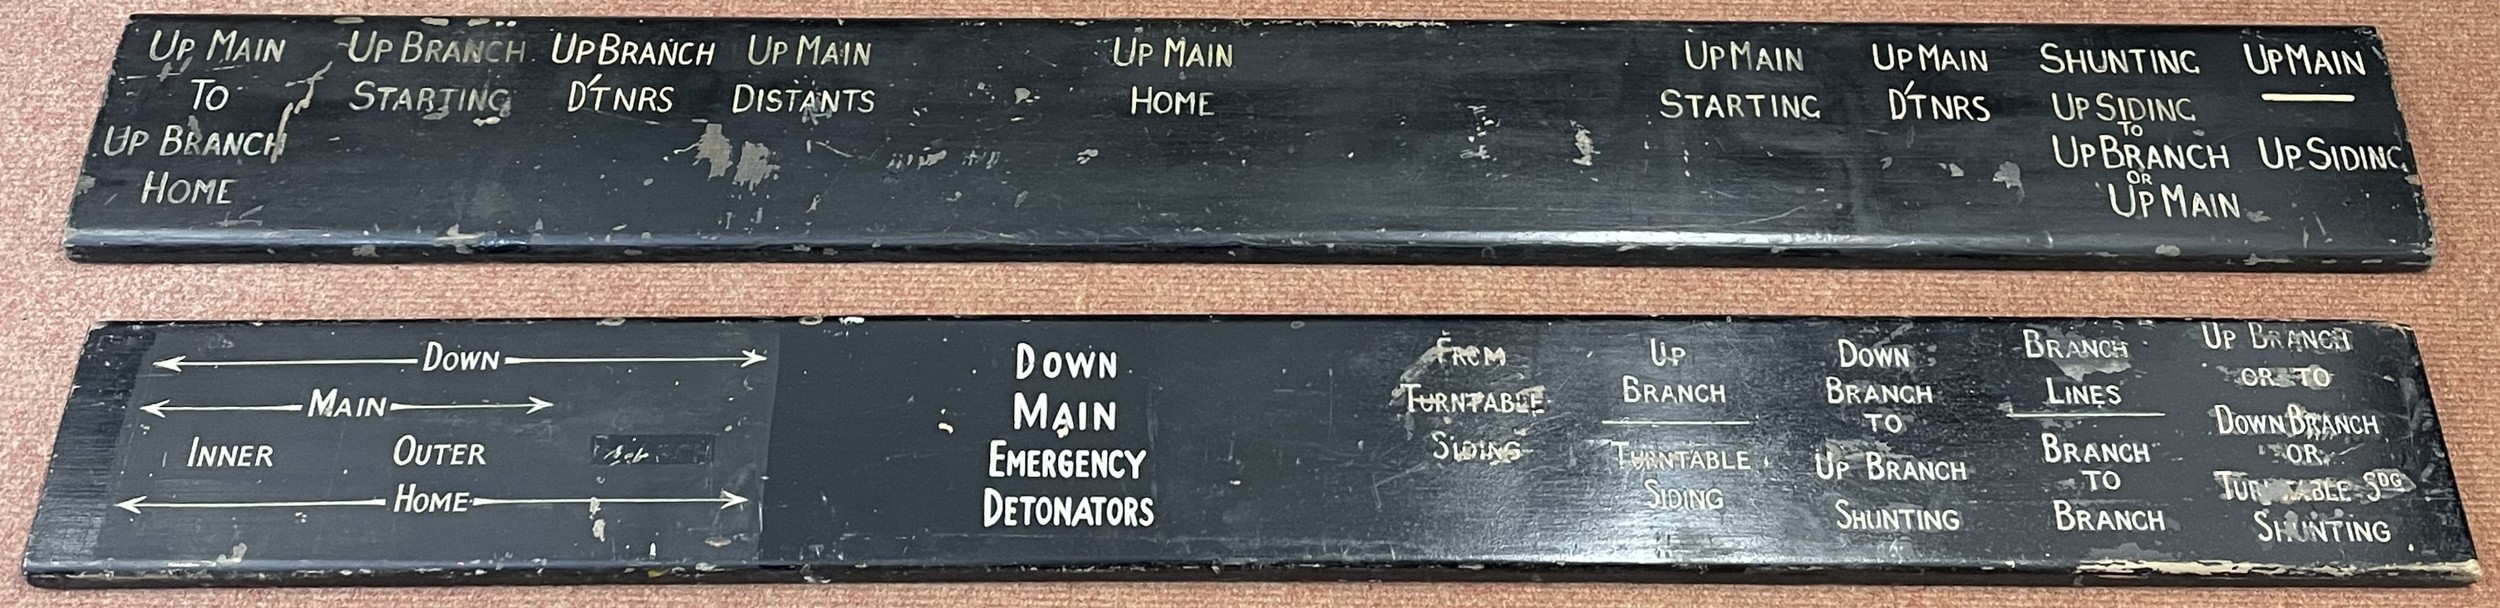 UP MAIN
TO
UP BRANCH
HOME
UP BRANCH
STARTING
UP BRANCH
D'TNRS
UP MAIN
DISTANTS
UP MAIN
HOME
UP MAIN
STARTING
UP MAIN
D'TNRS
SHUNTING
UP SIDING
TO
UP BRANCH
OR
UP MAIN
UP MAIN
UP SIDING
DOWN
MAIN
INNER OUTER
HOME
DOWN
MAIN
EMERGENCY
DETONATORS
FROM
TURNTABLE
SIDING
UP
BRANCH
TURNTABLE
SIDING
DOWN
BRANCH
TO
UP BRANCH
SHUNTING
BRANCH
LINES
BRANCH
TO
BRANCH
UP BRANCH
OR TO
DOWN BRANCH
OR
TURNTABLE SDG
SHUNTING